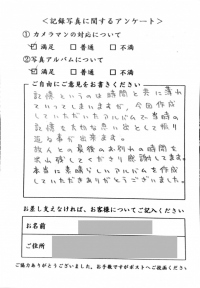 ＜記録写真に関するアンケート＞
① カメラマンの対応について
☑ 満足 □ 普通 □ 不満
② 写真アルバムについて
☑ 満足 □ 普通 □ 不満
ご自由にご意見をお書きください
記憶というのは時間と共に薄れ
ていってしまいますが、今回作成
していただいたアルバムで当時の
記憶を大切な思い出として振り
返る事が出来ます。
故人との最後のお別れの時間を
形に残してくださり感謝してます。
本当に素晴らしいアルバムを作成
していただきありがとうございました。
お差し支えなければ、お客様についてご記入ください
お名前
ご住所
ご協力ありがとうございました。お手数ですがポストへご投函ください